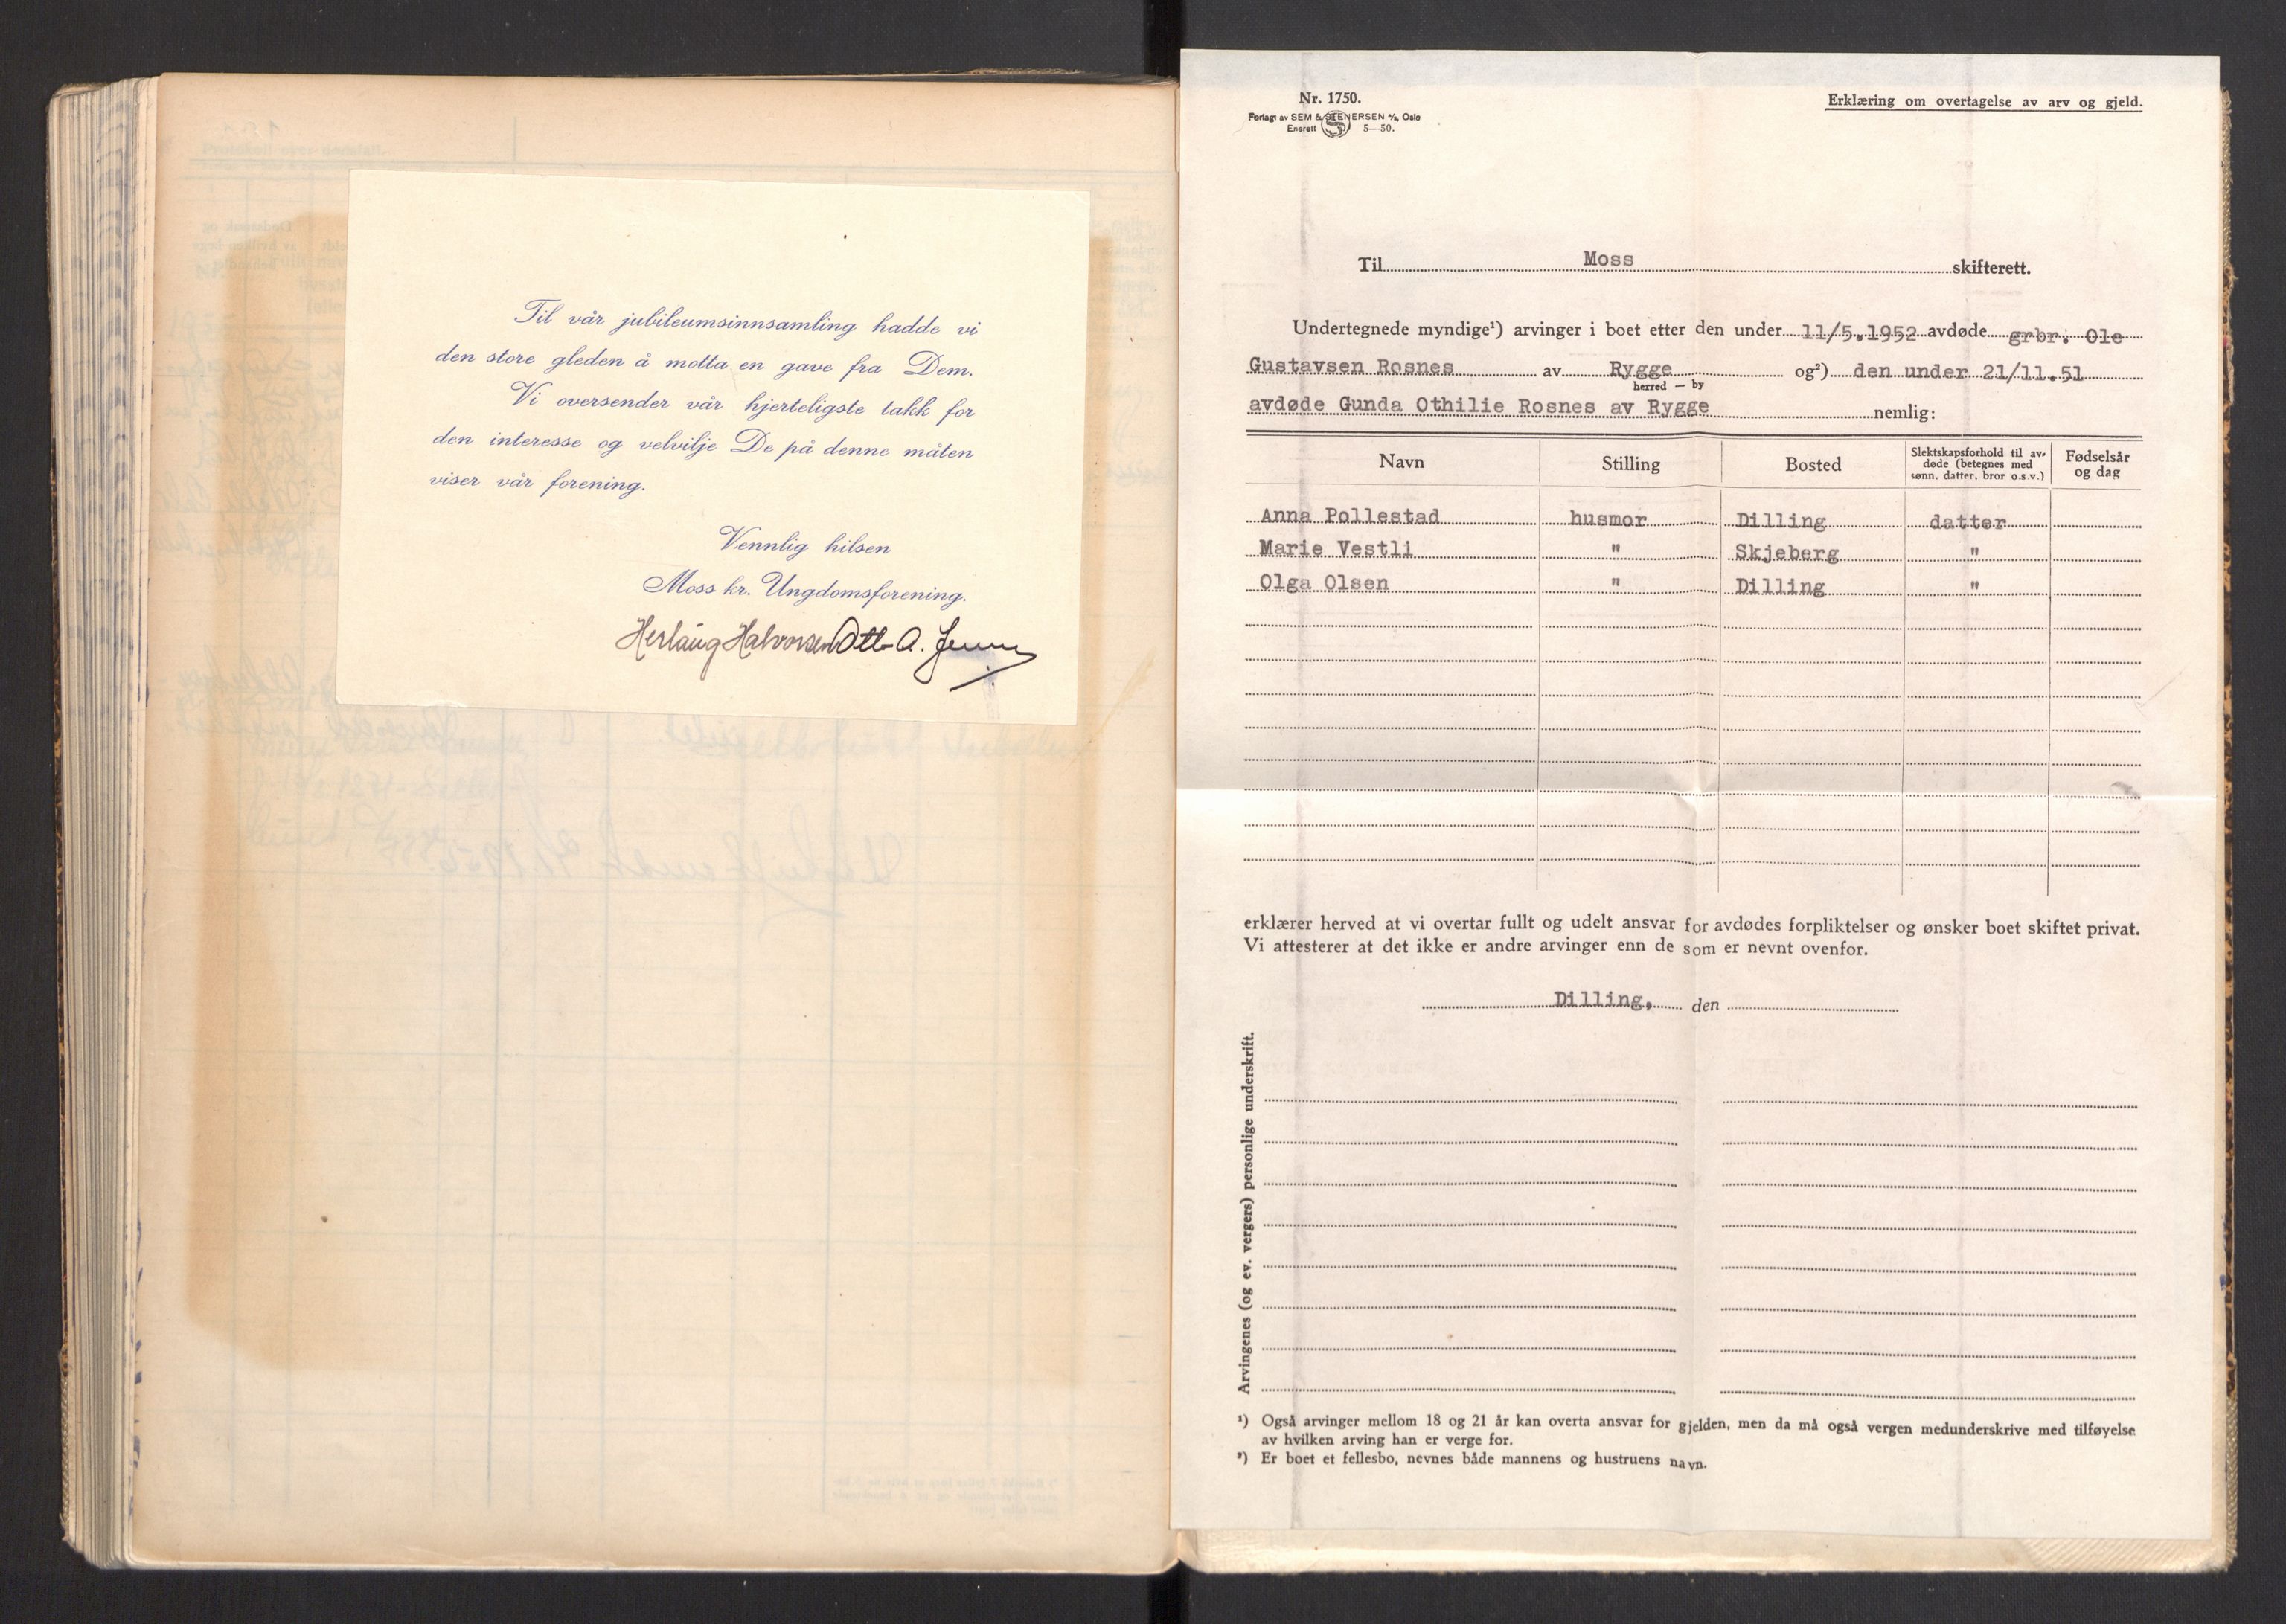 Til vår jubileumsinnsamling hadde vi
den store gleden å motta en gave fra Dem.
Vi oversender vår hjerteligste takk for
den interesse og velvilje De på denne måten
viser vår forening.
Vennlig hilsen
Moss kr. Ungdomsforening.
Herlaug Halvorsen Otto A.
Nr. 1750.
Forlagt av SEM & STENERSEN A/S, Oslo
Enerett 5—50.
Erklæring om overtagelse av arv og gjeld.
Til Moss skifterett.
Undertegnede myndige¹) arvinger i boet etter den under 11/5.1952 avdøde grbr. Ole
Gustavsen Rosnes av Rygge og²) den under 21/11.51
herred — by
avdøde Gunda Othilie Rosnes av Rygge nemlig:
Navn Stilling Bosted Slektskapsforhold til avdøde (betegnes med sønn, datter, bror o.s.v.) Fødselsår og dag
Anna Pollestad husmor Dilling datter
Marie Vestli " Skjeberg "
Olga Olsen " Dilling "
erklærer herved at vi overtar fullt og udelt ansvar for avdødes forpliktelser og ønsker boet skiftet privat.
Vi attesterer at det ikke er andre arvinger enn de som er nevnt ovenfor.
Dilling, den
Arvingenes (og ev. vergers) personlige underskrift.
¹) Også arvinger mellom 18 og 21 år kan overta ansvar for gjelden, men da må også vergen medunderskrive med tilføyelse
av hvilken arving han er verge for.
²) Er boet et fellesbo, nevnes både mannens og hustruens navn.